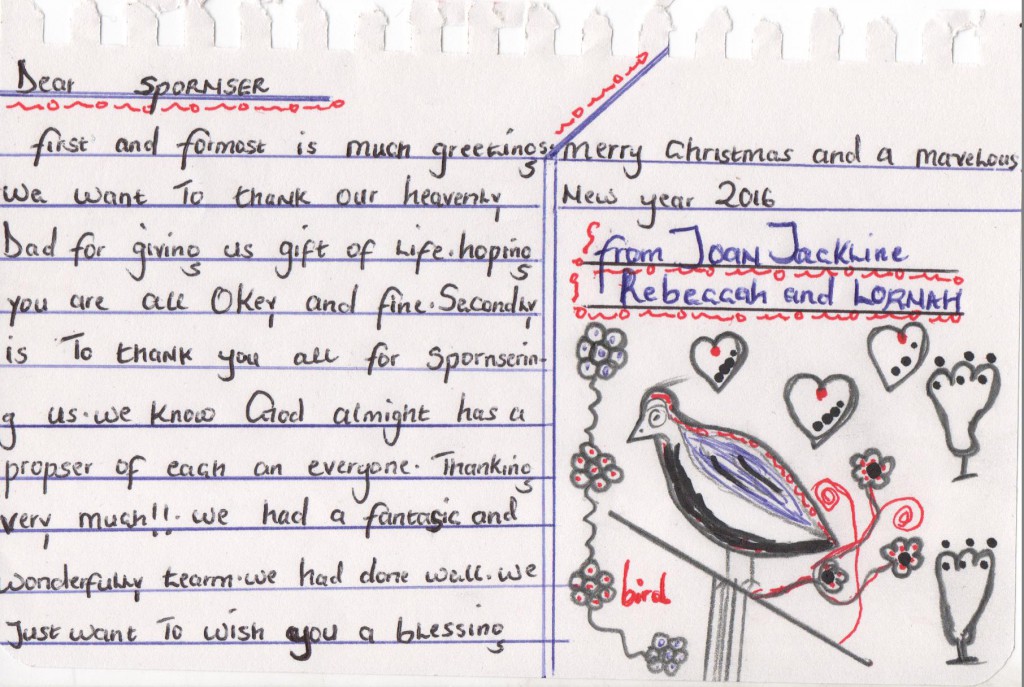 Dear SPORNSER
first and formost is much greetings.
We want To thank our heavenly
Dad for giving us gift of Life. hoping
you are all Okey and fine. Secondly
is To thank you all for spornserin-
g us. we know God almight has a
propser of each an everyone. Thanking
very much!!. we had a fantasic and
wonderfully tearm. we had done well. we
Just want To wish you a blessing
merry Christmas and a marvelous
New year 2016
from Joan Jackline
Rebeccah and LORNAH
bird